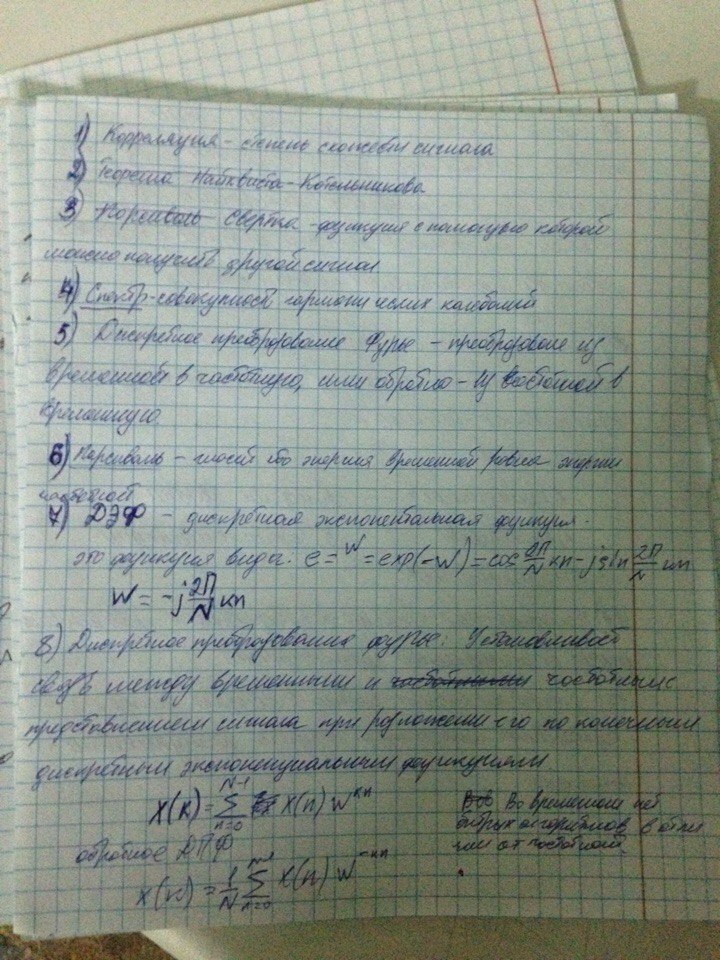 1) Корреляция - степень схожести сигнала
2) Теорема Найквиста-Котельникова
3) Парсиваль Свертка - функция с помощью которой
можно получить другой сигнал
4) Спектр - совокупность гармонических колебаний
5) Дискретное преобразование Фурье - преобразование из
временной в частотную, или обратно - из частотной в
временную
6) Парсиваль - гласит что энергия временной равна энергии
частотной
7) ДЭФ - дискретная экспонентальная функция.
это функция вида: e = W = exp(-W) = cos 2П/N kn - j sin 2П/N kn
W = -j 2П/N kn
8) Дискретное преобразование фурье. Устанавливает
связь между временными и частотным
представлением сигнала при разложении его по конечным
дискретным экспоненциальным функциям
X(k) = Σ N-1 n=0 X(n) W^kn
Во времени нет
быстрых алгоритмов в отли
чии от частотной
обратное ДПФ
x(n) = 1/N Σ n-1 n=0 X(n) W^-kn